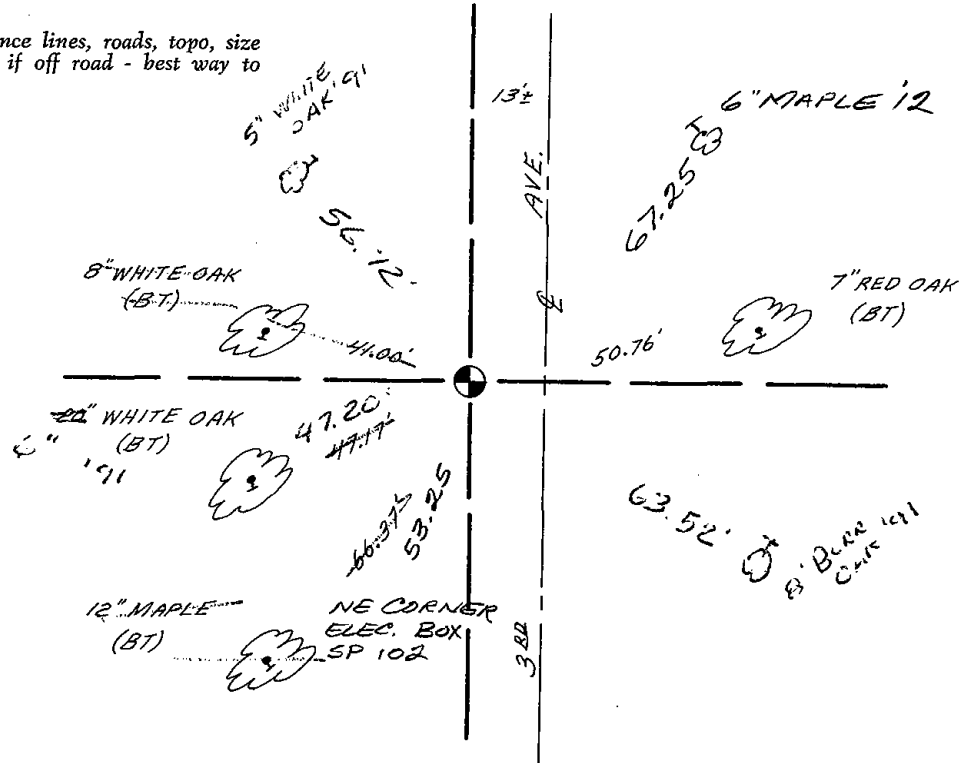 nce lines, roads, topo, size
if off road - best way to
5" WHITE
OAK '91
13'±
6" MAPLE '12
AVE.
56.12'
67.25
8" WHITE OAK
(BT)
7" RED OAK
(BT)
41.00'
50.76'
WHITE OAK
(BT)
'91
47.20'
47.17'
66.375
53.25
63.52'
8" BURR '91
OAK
12" MAPLE
(BT)
NE CORNER
ELEC. BOX
SP 102
3RD